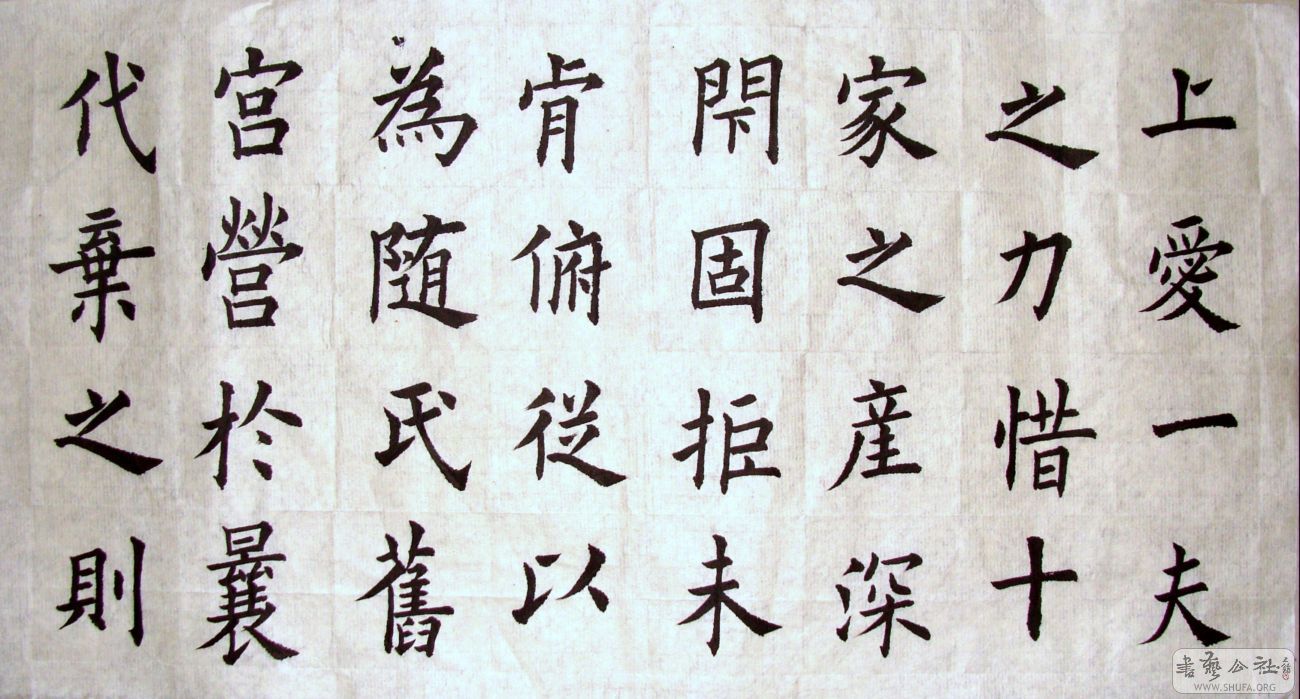 上愛一夫
之力惜十
家之産深
閇固拒未
肯俯従以
為随氏舊
宮營於曩
代棄之則
書藝公社
WWW.SHUFA.ORG